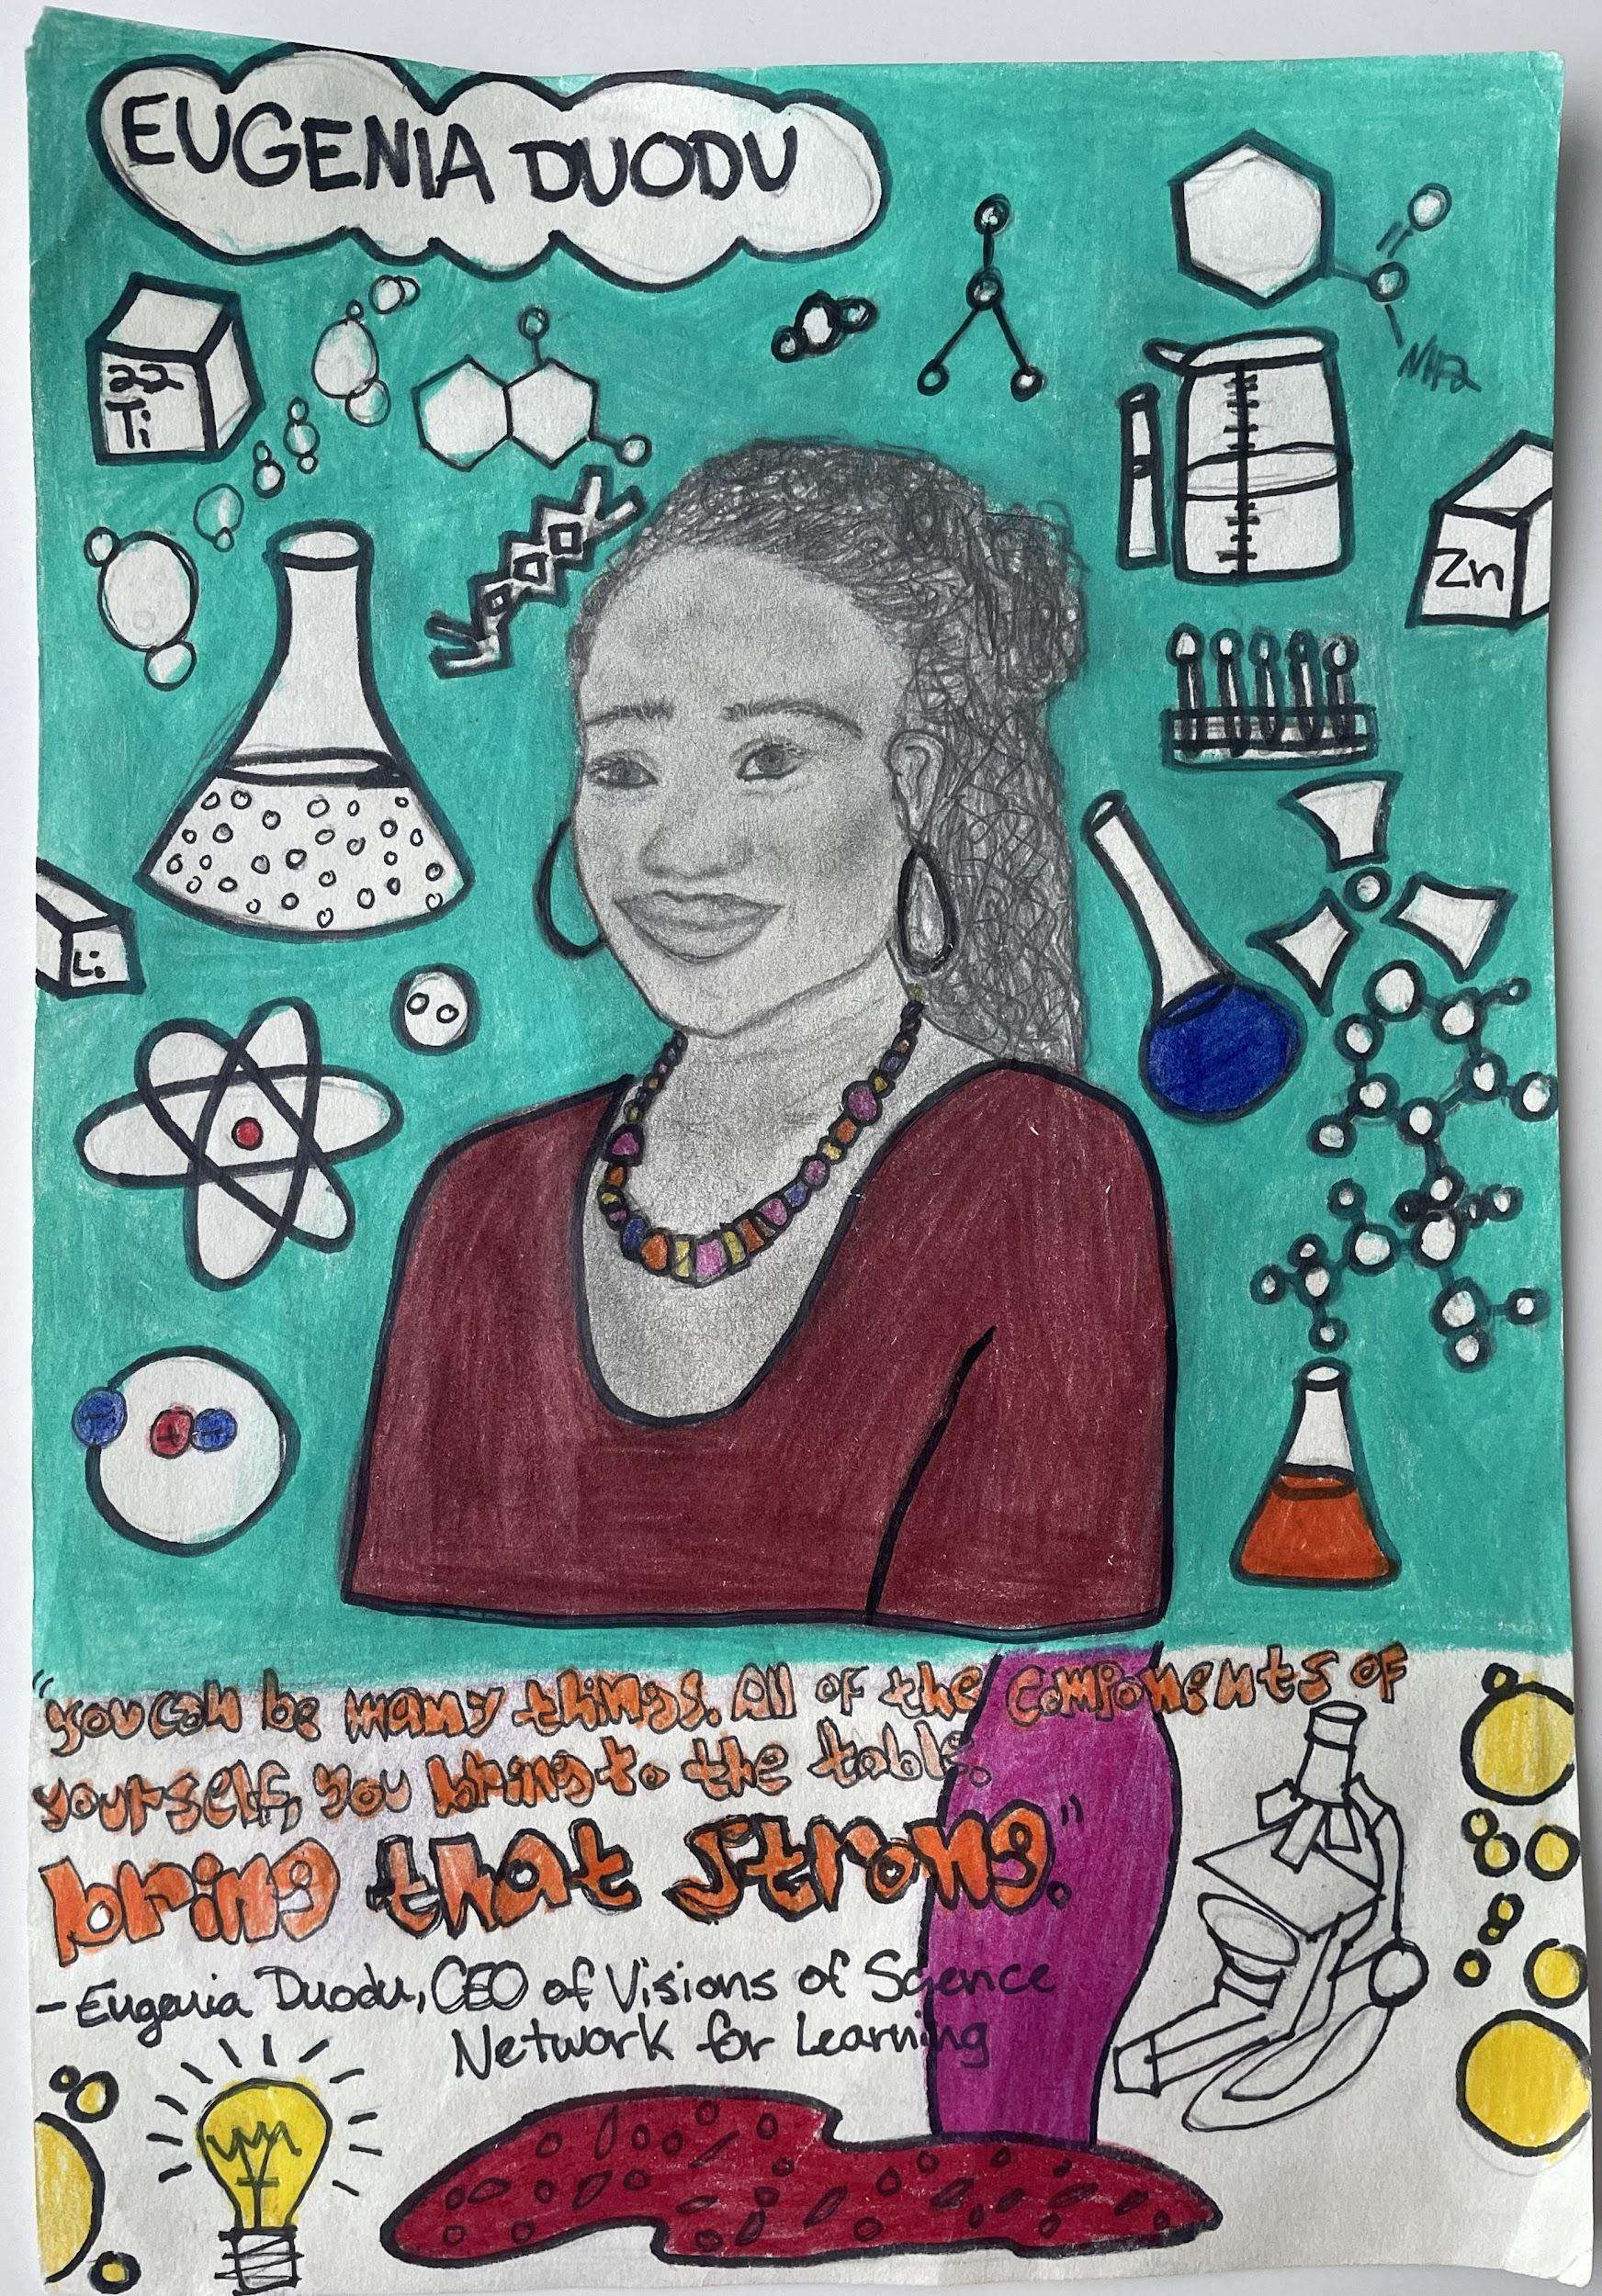 EUGENIA DUODU
22
Ti
NH2
Zn
Li
"you can be many things. All of the components of
yourself, you bring to the table.
bring that strong."
- Eugenia Duodu, CEO of Visions of Science
Network for Learning